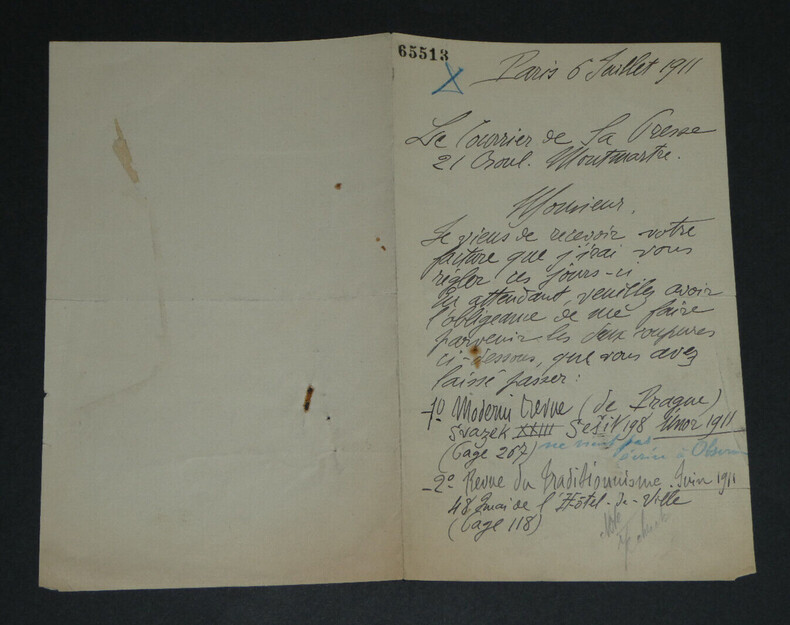 65513
Paris 6 Juillet 1911
Le Courrier de La Presse
21 Boul. Montmartre.
Monsieur,
Je viens de recevoir votre
facture que j'irai vous
régler ces jours-ci
En attendant, veuillez avoir
l'obligeance de me faire
parvenir les deux coupures
ci-dessous, que vous avez
laissé passer:
1º Moderni revue (de Prague)
Svazek XXIII Sešit 198 Únor 1911
(Page 267) ne veut pas
écrire à
2º Revue du Traditionnisme. Juin 1911
48 Quai de l'Hôtel-de-Ville
(Page 118)